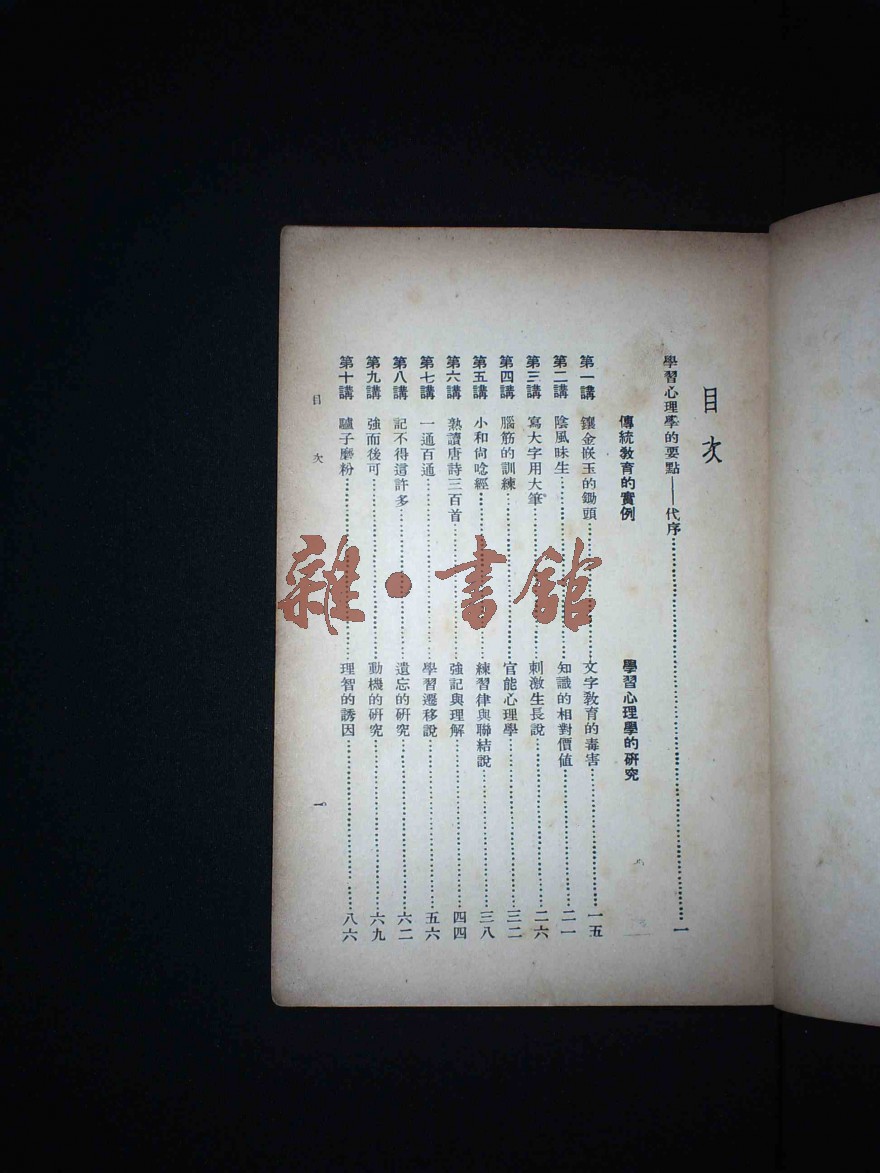 目次
學習心理學的要點——代序……一
傳統教育的實例 學習心理學的研究
第一講 鑲金嵌玉的鋤頭……文字教育的毒害……一五
第二講 陰風昧生……知識的相對價値……二一
第三講 寫大字用大筆……刺激生長說……二六
第四講 腦筋的訓練……官能心理學……三二
第五講 小和尙唸經……練習律與聯結說……三八
第六講 熟讀唐詩三百首……強記與理解……四四
第七講 一通百通……學習遷移說……五六
第八講 記不得這許多……遺忘的研究……六二
第九講 強而後可……動機的研究……六九
第十講 驢子磨粉……理智的誘因……八六
目次 一
雜·書館